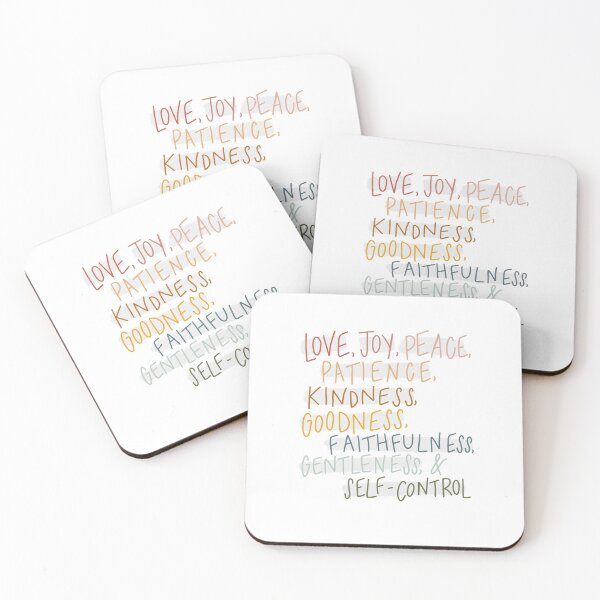 LOVE, JOY, PEACE,
PATIENCE,
KINDNESS,
LOVE, JOY, PEACE,
PATIENCE,
KINDNESS,
GOODNESS,
FAITHFULNESS,
GENTLENESS, &
LOVE, JOY, PEACE,
PATIENCE,
KINDNESS,
GOODNESS,
FAITHFULNESS,
GENTLENESS,
SELF-CO
LOVE, JOY, PEACE,
PATIENCE,
KINDNESS,
GOODNESS,
FAITHFULNESS,
GENTLENESS, &
SELF-CONTROL